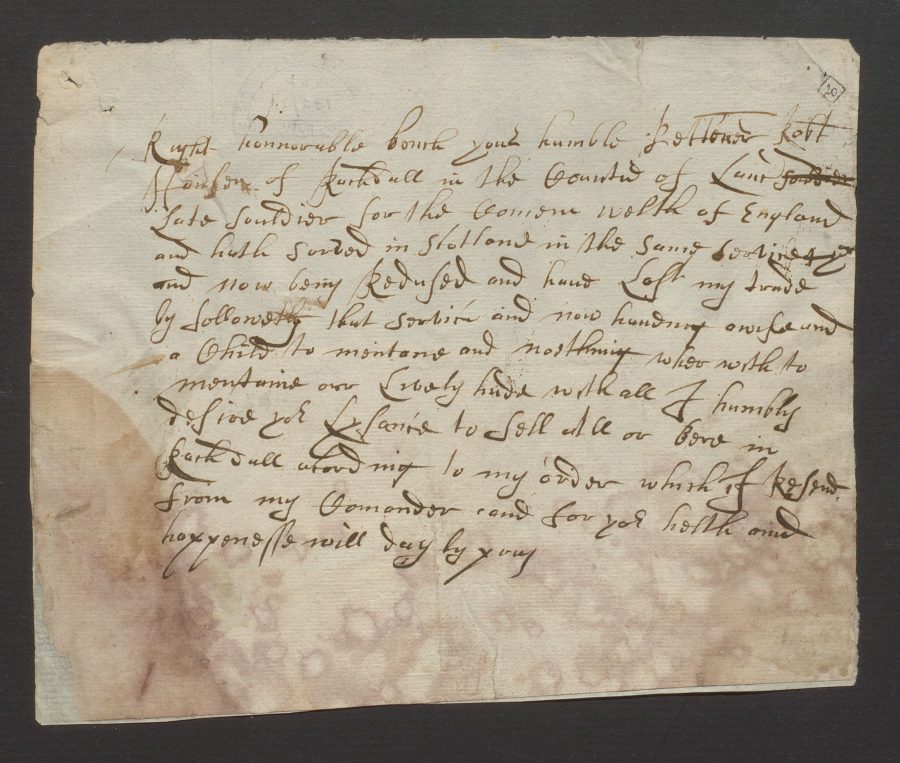 20
Right honnorable bench your humble Pettener Robt
of Rachdall in the Countie of Lanc
Late Souldier for the Comenn welth of England
and hath Served in Scotland in the same service
and now being Redused and have Lost my trade
by followeing that Service and now haveing a wife and
a Child to mentane and nosthing wher with to
mentaine our Lively hude with all I humbly
desire yor Lysance to sell all or bere in
Rachdall acording to my order which if Resend
from my Comander and for yor helth and
happenesse will day ly pray